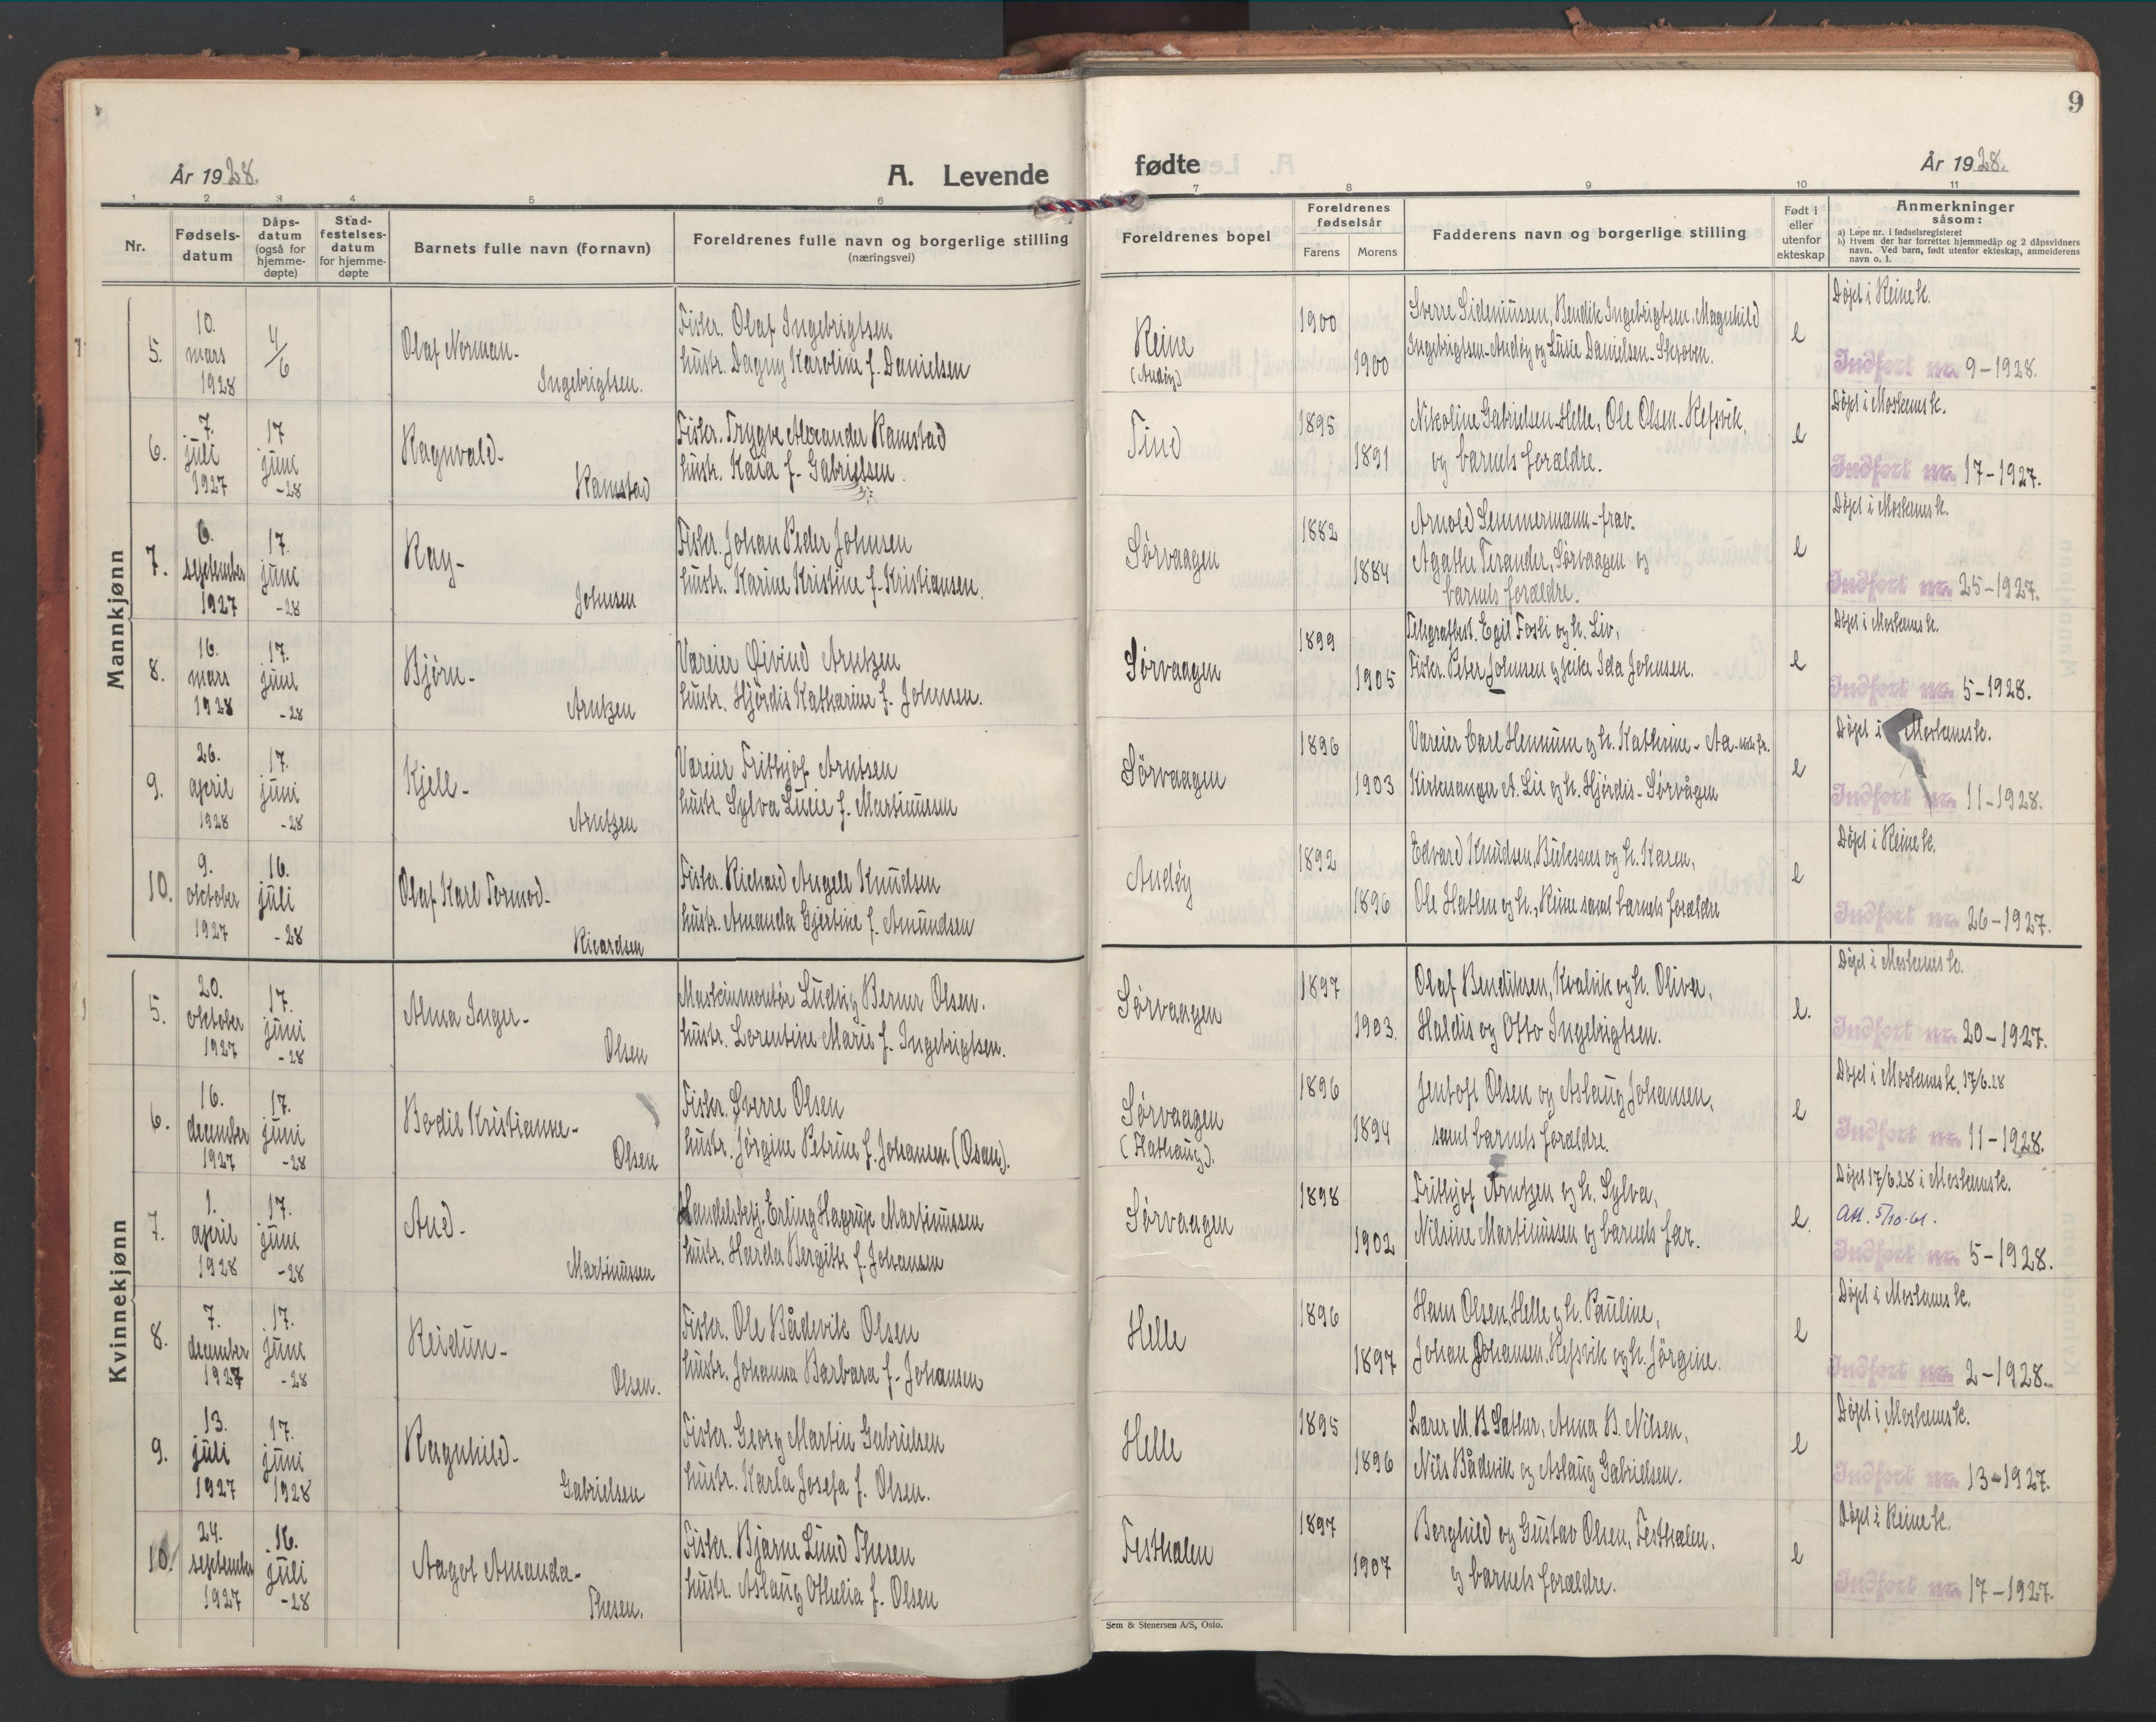 9
År 1928.
A. Levende
fødte
År 1928.
1 2 3 4 5 6 7 8 9 10 11
Nr.
Fødsels-
datum
Dåps-
datum
(også for
hjemme-
døpte)
Stad-
festelses-
datum
for hjemme-
døpte
Barnets fulle navn (fornavn)
Foreldrenes fulle navn og borgerlige stilling
(næringsvei)
Foreldrenes bopel
Foreldrenes
fødselsår
Farens Morens
Fadderens navn og borgerlige stilling
Født i
eller
utenfor
ekteskap
Anmerkninger
såsom:
a) Løpe nr. i fødselsregisteret
b) Hvem der har forrettet hjemmedåp og 2 dåpsvidners
navn. Ved barn, født utenfor ekteskap, anmelderens
navn o. l.
Mannkjønn
5.
10.
mars
1928
4/6
Olaf Norman-
Ingebrigtsen.
Fisker. Olaf Ingebrigtsen
hustr. Dagny Karoline f. Danielsen
Reine
(Andøy)
1900
1900
Sverre Sideniussen, Bendik Ingebrigtsen, Magnhild
Ingebrigtsen-Andøy og Lusie Danielsen-Skroven.
e
Døpt i Reine k.
Indført nr. 9-1928.
6.
7.
juli
1927
17
juni
-28
Ragnvald-
Ramstad
Fisker. Trygve Alexander Ramstad
hustr. Kaia f. Gabrielsen.
Tind
1895
1891
Nikoline Gabrielsen-Helle, Ole Olsen-Refsvik,
og barnets forældre.
e
Døpt i Moskenes k.
Indført nr. 17-1927.
7.
6.
september
1927
17.
juni
-28
Kay-
Johnsen
Fisker. Johan Peder Johnsen
hustr. Karine Kristine f. Kristiansen.
Sørvaagen
1882
1884
Arnold Semmermann-frav.
Agathe Terander, Sørvaagen og
barnets forældre.
e
Døpt i Moskenes k.
Indført nr. 25-1927.
8.
16.
mars
1928
17.
juni
-28
Bjørn-
Arntzen
Vareier Øivind Arntzen
hustr. Hjørdis Katharine f. Johnsen.
Sørvaagen
1899
1905
Telegrafbest. Egil Foshi og h. Liv,
Fisker. Peter Johnsen og pike Ida Johnsen.
e
Døpt i Moskenes k.
Indført nr. 5-1928.
9.
26.
april
1928
17.
juni
-28
Kjell-
Arntzen
Vareier Frithjof Arntsen
hustr. Sylva Lucie f. Martinussen
Sørvaagen
1896
1903
Vareier Carl Hennum og h. Kathrine- Aa
Kirkesanger A. Lie og h. Hjørdis-Sørvågen
e
Døpt i Moskenes k.
Indført nr. 11-1928.
10.
9.
oktober
1927
16.
juli
-28
Olaf Karl Tormod-
Ricardsen
Fisker. Richard Angell Knudsen
hustr. Amanda Gjertine f. Amundsen
Andøy
1892
1896
Edvard Knudsen, Buksnes og h. Karen,
Ole Hatlen og h., Reine samt barnets forældre
e
Døpt i Reine k.
Indført nr. 26-1927.
Kvinnekjønn
5.
20.
oktober
1927
17.
juni
-28
Alma Inger-
Olsen
Maskinmontør Ludvig Berner Olsen.
hustr. Lorentine Marie f. Ingebrigtsen.
Sørvaagen
1897
1903.
Olaf Bendiksen, Kvalvik og h. Oliva,
Haldis og Otto Ingebrigtsen.
e.
Døpt i Moskenes k.
Indført nr. 20-1927.
6.
16.
december
1927
17.
juni
-28
Bodil Kristianne-
Olsen
Fisker. Sverre Olsen
hustr. Jørgine Petrine f. Johansen (Osan).
Sørvaagen
(Flathaug).
1896
1894
Jentoft Olsen og Aslaug Johansen,
samt barnets forældre.
e
Døpt i Moskenes k. 17/6.28
Indført nr. 11-1928.
7.
1.
april
1928
17.
juni
-28
Aud-
Martinussen
Handelsbetj. Erling Hagrup Martinussen
hustr. Harda Bergitte f. Johansen
Sørvaagen
1898
1902
Frithjof Arntzen og h. Sylva,
Nilsine Martinussen og barnets far.
e.
Døpt 17/6.28 i Moskenes k.
Att. 5/10-61.
Indført nr. 5-1928.
8.
7.
december
1927
17.
juni
-28
Reidun-
Olsen.
Fisker. Ole Bådsvik Olsen
hustr. Johanna Barbara f. Johansen
Helle
1896
1897
Hans Olsen, Helle og h. Pauline,
Johan Johansen, Refsvik og h. Jørgine.
e
Døpt i Moskenes k.
Indført nr. 2-1928.
9.
13.
juli
1927
17.
juni
1928
Ragnhild-
Gabrielsen
Fisker. Georg Martin Gabrielsen
hustr. Karla Josefa f. Olsen.
Helle
1895
1896
Lærer M. B. Sather, Anna B. Nilsen,
Nils Bådsvik og Aslaug Gabrielsen.
e
Døpt i Moskenes k.
Indført nr. 13-1927.
10.
24.
september
1927
16.
juli
-28
Aagot Amanda-
Thesen.
Fisker. Bjarne Lund Thesen
hustr. Aslaug Othelia f. Olsen
Festhælen
1897
1907
Borghild og Gustav Olsen, Festhælen.
og barnets forældre.
e
Døpt i Reine k.
Indført nr. 17-1927.
Sem & Stenersen A/S, Oslo.